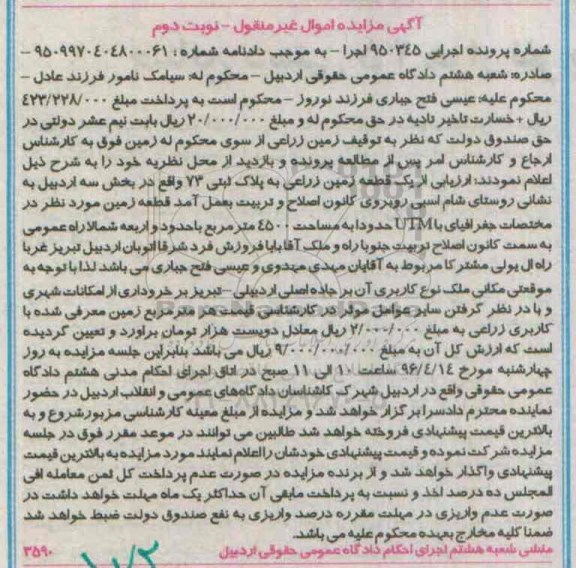 آگهی مزایده اموال غیرمنقول – نوبت دوم
شماره پرونده اجرایی ۹۵۰۳۴۵ اجرا – به موجب دادنامه شماره : ۹۵۰۹۹۷۰۴۰۴۸۰۰۰۶۱ –
صادره: شعبه هشتم دادگاه عمومی حقوقی اردبیل – محکوم له: سیامک نامور فرزند عادل –
محکوم علیه: عیسی فتح جباری فرزند نوروز – محکوم است به پرداخت مبلغ ۴۲۳/۲۲۸/۰۰۰
ریال + خسارت تاخیر تادیه در حق محکوم له و مبلغ ۲۰/۰۰۰/۰۰۰ ریال بابت نیم عشر دولتی در
حق صندوق دولت که نظر به توقیف زمین زراعی از سوی محکوم له زمین فوق به کارشناس
ارجاع و کارشناس امر پس از مطالعه پرونده و بازدید از محل نظریه خود را به شرح ذیل
اعلام نمودند: ارزیابی از یک قطعه زمین زراعی به پلاک ثبتی ۷۳ واقع در بخش سه اردبیل به
نشانی روستای شام اسبی روبروی کانون اصلاح و تربیت بعمل آمد قطعه زمین مورد نظر در
مختصات جغرافیای با UTM حدودا به مساحت ۴۵۰۰ متر مربع با حدود و اربعه شمالا راه عمومی
به سمت کانون اصلاح تربیت جنوبا راه و ملک آقا بابا فروزش فرد شرقا اتوبان اردبیل تبریز غربا
راه ال یولی مشترکا مربوط به آقایان مهدی مهدوی و عیسی فتح جباری می باشد لذا با توجه به
موقعتی مکانی ملک نوع کاربری آن بر جاده اصلی اردبیلی – تبریز بر خروداری از امکانات شهری
و با در نظر گرفتن سایر عوامل موثر در کارشناسی قیمت هر متر مربع زمین معرفی شده با
کاربری زراعی به مبلغ ۲/۰۰۰/۰۰۰ ریال معادل دویست هزار تومان براورد و تعیین گردیده
است که ارزش کل آن به مبلغ ۹/۰۰۰/۰۰۰/۰۰۰ ریال می باشد بنابراین جلسه مزایده به روز
چهارشنبه مورخ ۹۶/۴/۱۴ ساعت ۱۰ الی ۱۱ صبح در اتاق اجرای احکام مدنی هشتم دادگاه
عمومی حقوقی واقع در اردبیل شهرک کاشناسان دادگاه‌های عمومی و انقلاب اردبیل در حضور
نماینده محترم دادسرا برگزار خواهد شد و مزایده از مبلغ معینه کارشناسی مزبور شروع و به
بالاترین قیمت پیشنهادی فروخته خواهد شد طالبین می توانند در موعد مقرر فوق در جلسه
مزایده شرکت نموده و قیمت پیشنهادی خودشان را اعلام نمایند مورد مزایده به بالاترین قیمت
پیشنهادی واگذار خواهد شد و از برنده مزایده در صورت عدم پرداخت کل ثمن معامله افی
المجلس ده درصد اخذ و نسبت به پرداخت مابقی آن حداکثر یک ماه مهلت خواهد داشت در
صورت عدم واریزی در مهلت مقرره درصد واریزی به نفع صندوق دولت ضبط خواهد شد
ضمنا کلیه مخارج بعهده محکوم علیه می باشد.
منشی شعبه هشتم اجرای احکام دادگاه عمومی حقوقی اردبیل ۳۵۹۰